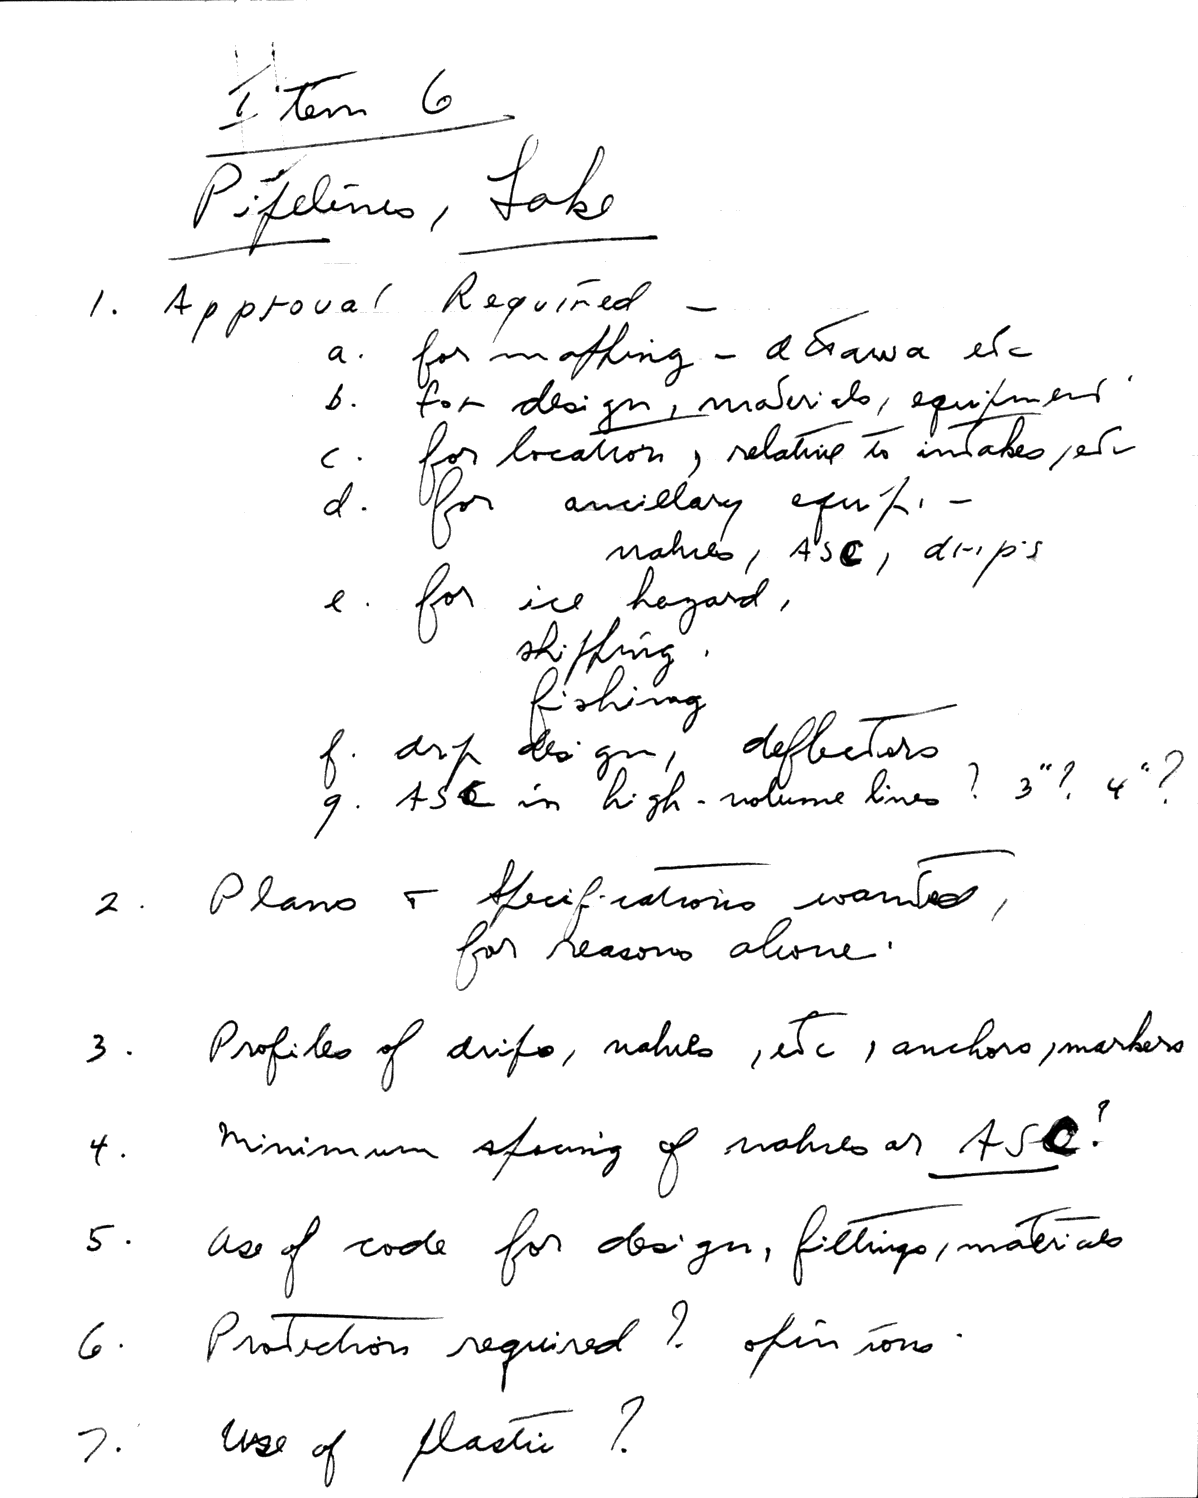 Item 6
Pipelines, Lake
1. Approval Required -
a. for mapping - Ottawa etc
b. for design, materials, equipment
c. for location, relative to intakes, etc
d. for ancillary equip. -
valves, ASC, drips
e. for ice hazard,
shipping.
fishing
f. drip design, deflectors
g. ASC in high-volume lines? 3"? 4"?
2. Plans + Specifications wanted,
for reasons above.
3. Profiles of drips, valves, etc, anchors, markers
4. Minimum spacing of valves or ASC?
5. Use of code for design, fittings, materials
6. Protection required? opinions.
7. Use of plastic?